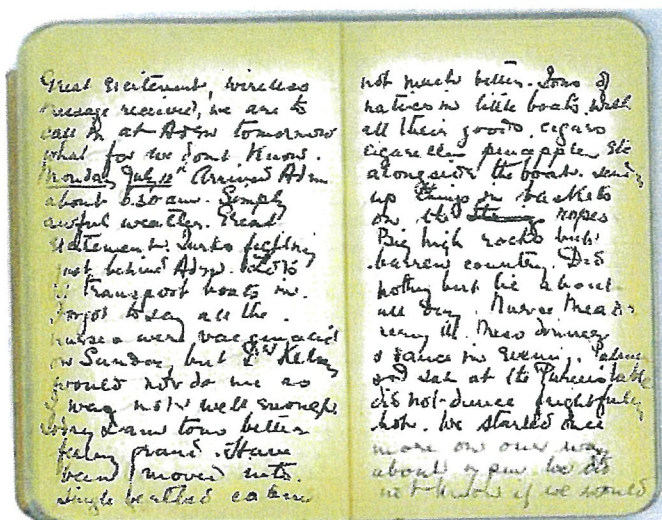 Great excitement, wireless
message received, we are to
call in at Aden tomorrow
what for we dont know.
Monday July 12th Arrived Aden
about 6.30 am. Simply
awful weather. Great
excitement. Turks fighting
just behind Aden.
transport boats in.
Forgot to say all the
nurses were vaccinated
on Sunday but Dr Kelsey
would not do me as
I was not well enough.
today I am tons better
feeling grand. Have
been moved into
single berthed cabin
not much better. Tons of
natives in little boats with
all their goods. cigars
cigarettes pineapples etc
alongside the boat. sending
up things in baskets
on the ropes
Big high rocks but
barren country. Did
nothing but lie about
all day. Nurse
very ill. Mess dinner
& dance in evening.
and sat at the table
did not dance frightfully
hot. We started once
more on our way
about 9 pm we do
not know if we would